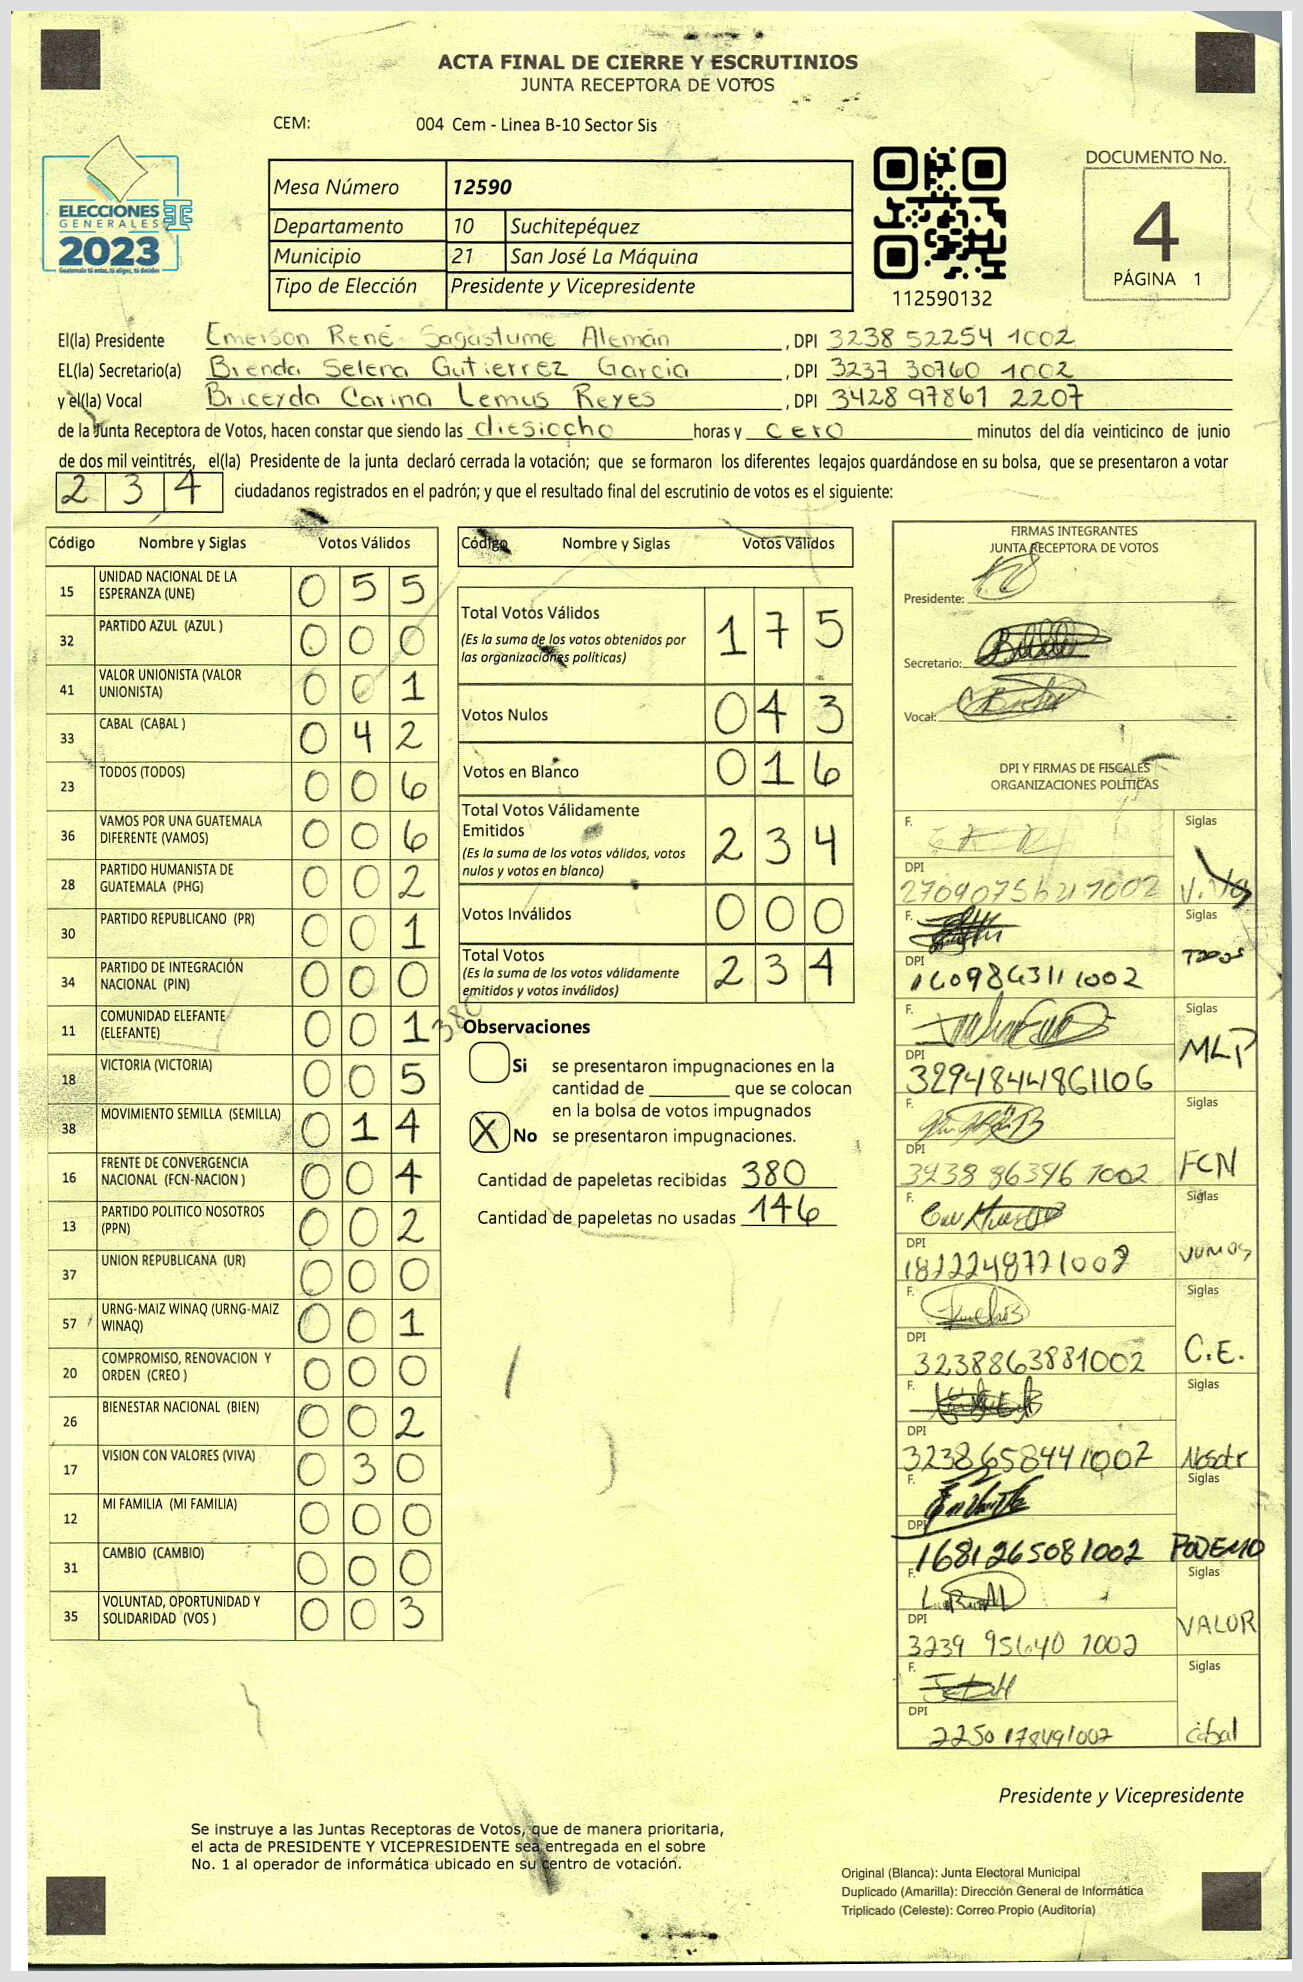 ACTA FINAL DE CIERRE Y ESCRUTINIOS
JUNTA RECEPTORA DE VOTOS
CEM: 004 Cem - Linea B-10 Sector Sis
ELECCIONES
GENERALES
2023
Guatemala tú eres, tú eliges, tú decides
Mesa Número 12590
Departamento 10 Suchitepéquez
Municipio 21 San José La Máquina
Tipo de Elección Presidente y Vicepresidente
112590132
DOCUMENTO No.
4
PÁGINA 1
El(la) Presidente Emerson René Sagastume Alemán , DPI 3238 52254 1002
EL(la) Secretario(a) Brenda Selena Gutierrez Garcia , DPI 3237 30760 1002
y el(la) Vocal Briceyda Carina Lemus Reyes , DPI 3428 97861 2207
de la Junta Receptora de Votos, hacen constar que siendo las diesiocho horas y cero minutos del día veinticinco de junio
de dos mil veintitrés, el(la) Presidente de la junta declaró cerrada la votación; que se formaron los diferentes legajos guardándose en su bolsa, que se presentaron a votar
234 ciudadanos registrados en el padrón; y que el resultado final del escrutinio de votos es el siguiente:
Código Nombre y Siglas Votos Válidos
15 UNIDAD NACIONAL DE LA ESPERANZA (UNE) 055
32 PARTIDO AZUL (AZUL ) 000
41 VALOR UNIONISTA (VALOR UNIONISTA) 001
33 CABAL (CABAL ) 042
23 TODOS (TODOS) 006
36 VAMOS POR UNA GUATEMALA DIFERENTE (VAMOS) 006
28 PARTIDO HUMANISTA DE GUATEMALA (PHG) 002
30 PARTIDO REPUBLICANO (PR) 001
34 PARTIDO DE INTEGRACIÓN NACIONAL (PIN) 000
11 COMUNIDAD ELEFANTE (ELEFANTE) 001
18 VICTORIA (VICTORIA) 005
38 MOVIMIENTO SEMILLA (SEMILLA) 014
16 FRENTE DE CONVERGENCIA NACIONAL (FCN-NACION ) 004
13 PARTIDO POLITICO NOSOTROS (PPN) 002
37 UNION REPUBLICANA (UR) 000
57 URNG-MAIZ WINAQ (URNG-MAIZ WINAQ) 001
20 COMPROMISO, RENOVACION Y ORDEN (CREO ) 000
26 BIENESTAR NACIONAL (BIEN) 002
17 VISION CON VALORES (VIVA) 030
12 MI FAMILIA (MI FAMILIA) 000
31 CAMBIO (CAMBIO) 000
35 VOLUNTAD, OPORTUNIDAD Y SOLIDARIDAD (VOS ) 003
Código Nombre y Siglas Votos Válidos
Total Votos Válidos 175
(Es la suma de los votos obtenidos por
las organizaciones políticas)
Votos Nulos 043
Votos en Blanco 016
Total Votos Válidamente
Emitidos 234
(Es la suma de los votos válidos, votos
nulos y votos en blanco)
Votos Inválidos 000
Total Votos 234
(Es la suma de los votos válidamente
emitidos y votos inválidos)
380
Observaciones
Si se presentaron impugnaciones en la
cantidad de ________ que se colocan
en la bolsa de votos impugnados
X No se presentaron impugnaciones.
Cantidad de papeletas recibidas 380
Cantidad de papeletas no usadas 146
FIRMAS INTEGRANTES
JUNTA RECEPTORA DE VOTOS
Presidente:
Secretario:
Vocal:
DPI Y FIRMAS DE FISCALES
ORGANIZACIONES POLÍTICAS
F. Siglas
DPI
F. Siglas
DPI 1609863111002 TODOS
F. Siglas
DPI 32948444861106 MLP
F. Siglas
DPI 3238 86396 1002 FCN
F. Siglas
DPI 1822248721002 VUMOS
F. Siglas
DPI 3238863881002 C.E.
F. Siglas
DPI 3238658441002 Nosotr
F. Siglas
DPI 1681265081002 PODEMO
F. Siglas
DPI 3239 95640 1002 VALOR
F. Siglas
DPI 2250178491002 cabal
Presidente y Vicepresidente
Se instruye a las Juntas Receptoras de Votos, que de manera prioritaria,
el acta de PRESIDENTE Y VICEPRESIDENTE sea entregada en el sobre
No. 1 al operador de informática ubicado en su centro de votación.
Original (Blanca): Junta Electoral Municipal
Duplicado (Amarilla): Dirección General de Informática
Triplicado (Celeste): Correo Propio (Auditoría)